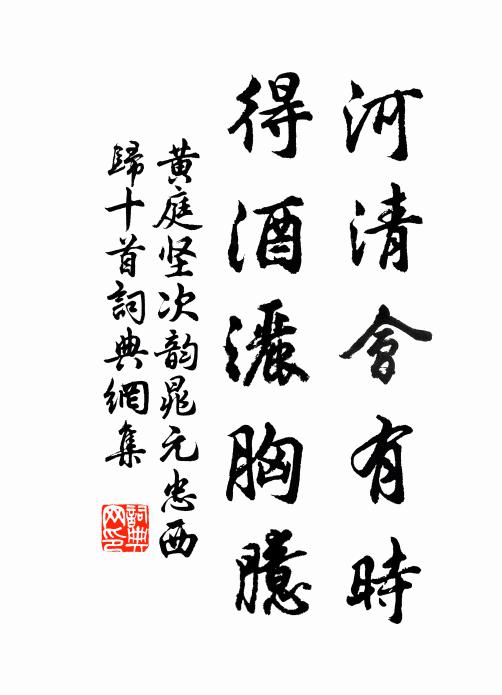 河清會有時
得酒灑胸臆
黄庭坚次韵晁元忠西
歸十首詞典網集
詞典网印